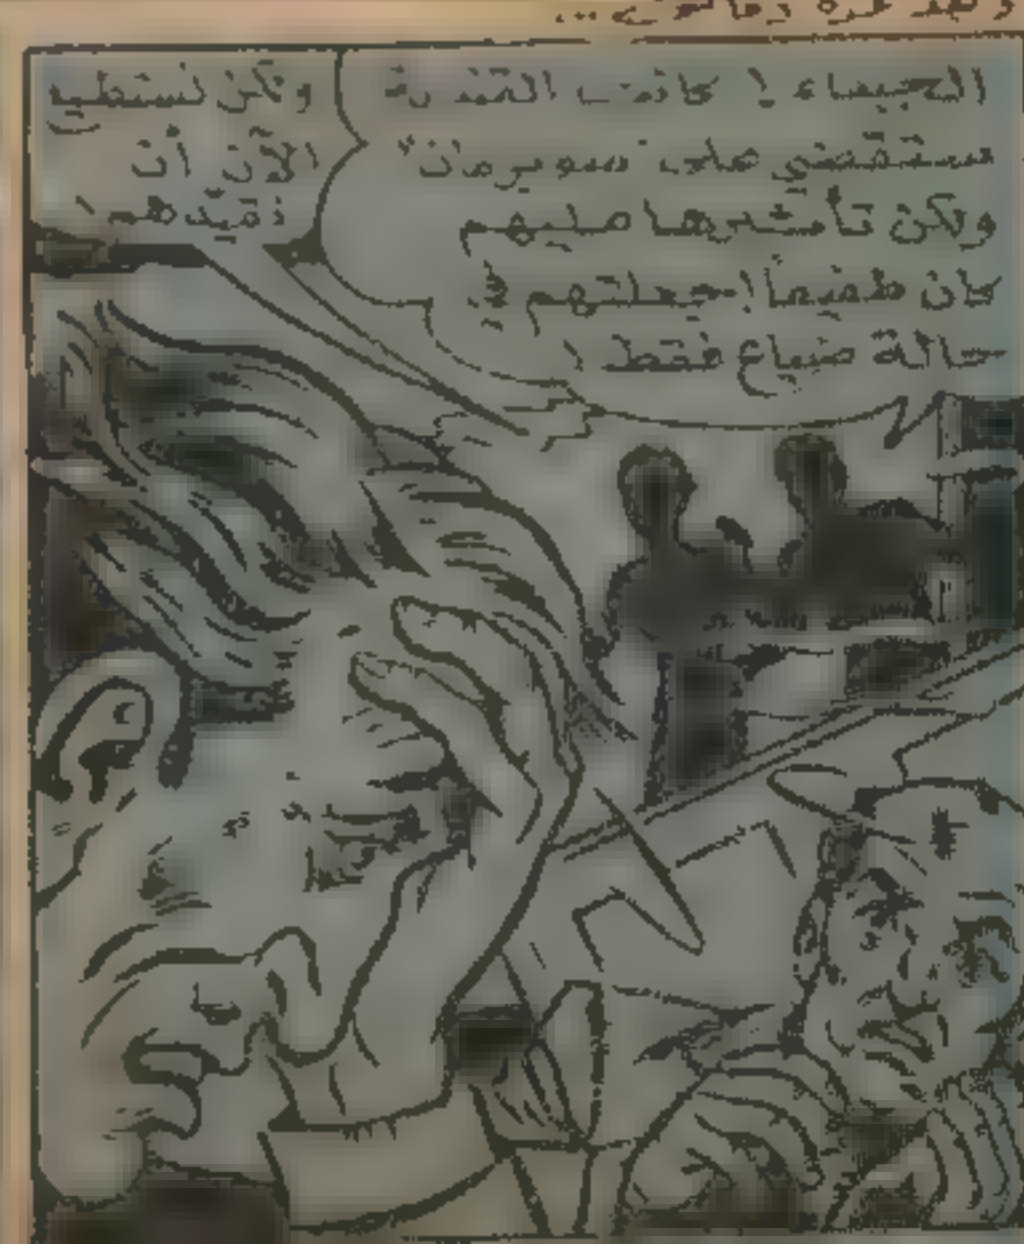 وبعد فترة وما
البيضاء ! كانت القذيفة
ستقضي على "سوبرمان"
ولكن تأثيرها عليهم
كان طفيفاً ! جعلتهم في
حالة ضياع فقط !
ولكن نستطيع
الآن أن
نقيدهم !